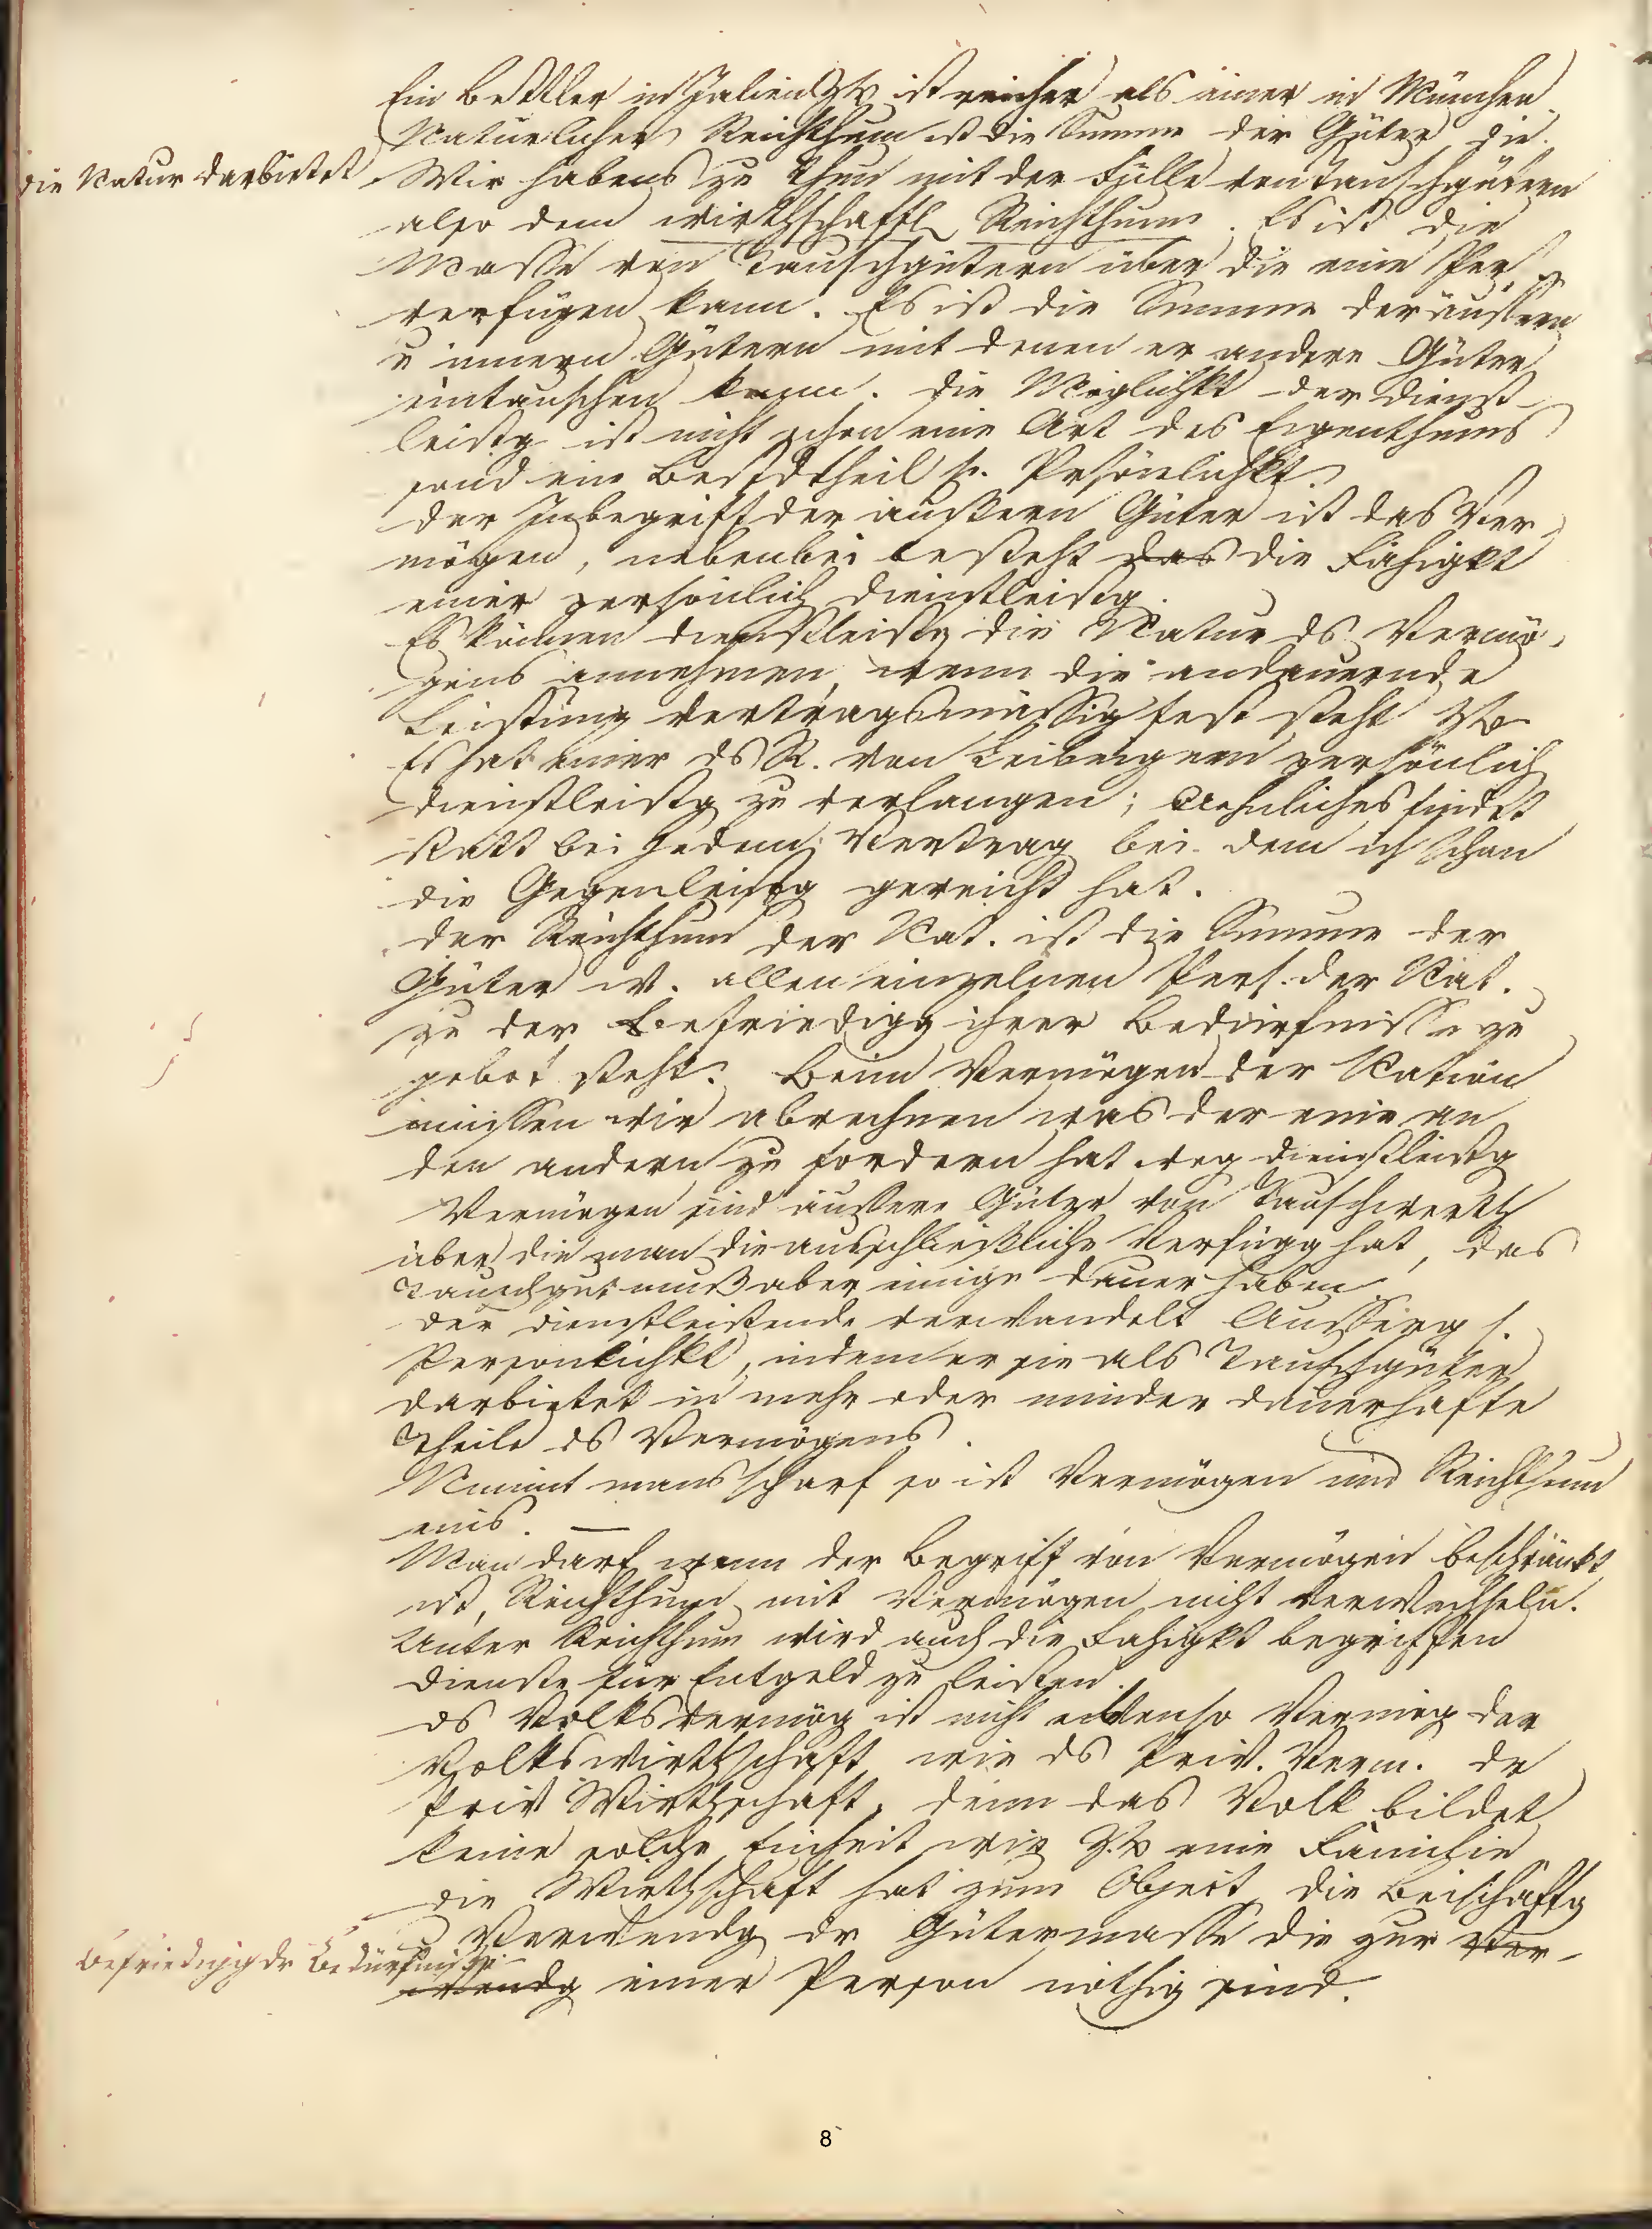 Ein Bettler in Italien z.B. ist reicher als einer in München
Natürlicher Reichthum ist die Summe der Güter, die
die Natur darbietet
Wir habens zu thun mit der Fülle von Tauschgütern
also dem wirthschaftl Reichthum. Es ist die
Masse von Tauschgütern über die eine Per.
verfügen kann. Es ist die Summe der äussern
u innern Gütern mit denen er andere Güter
eintauschen kann. Die Möglichkt der Dienst-
leistg ist nicht schon eine Art des Eigenthums
sond ein Bestdtheil s. Persönlichkt.
Der Inbegriff der äußern Güter ist das Ver-
mögen, nebenbei besteht das die Fähigkt
einer persönlich Dienstleistg.
Es können Dienstleistg die Natur ds Vermö-
gens annehmen, wenn die andauernde
Leistung vertragsmässig fest steht z.B.
Es hat einer ds R. von Leibeignen persönlich
Dienstleistg zu verlangen; Aehnliches findet
statt bei jedem Vertrag bei dem ich schon
die Gegenleistg gereicht hat.
Der Reichthum der Nat. ist die Summe der
Güter w. allen einzelnen Pers. der Nat.
zu der Befriedigg ihrer Bedürfnisse zu
gebot steht. Beim Vermögen der Nation
müssen wir abrechnen was der eine an
den andern zu fordern hat weg Dienstleistg
Vermögen sind äussere Güter von Tauschwerth
über die man die ausschließliche Verfügg hat, das
Tauschgut muß aber einige Dauer haben
Der Dienstleistende verwandelt Äusserg s.
Persönlichkt, indem er sie als Tauschgüter
darbietet in mehr oder minder dauerhafte
Theile ds Vermögens.
Nimmt mans scharf so ist Vermögen und Reichthum
eins. —
Man darf wenn der Begriff von Vermögen beschränkt
ist, Reichthum mit Vermögen nicht verwechseln.
Unter Reichthum wird auch die Fähigkt begriffen
Dienste für Entgeld zu leisten.
Ds Volksvermög ist nicht ebenso Vermög der
Volkswirthschaft wie ds Priv. Verm. dr
Priv Wirthschaft, denn das Volk bildet
keine solche Einheit wie z.B eine Familie
Die Wirthschaft hat zum Object die Beischaffg
u Verwendg dr Gütermasse die zur Ver-
Befriedigg dr Bedürfnisse
wendg einer Person nöthig sind.
8